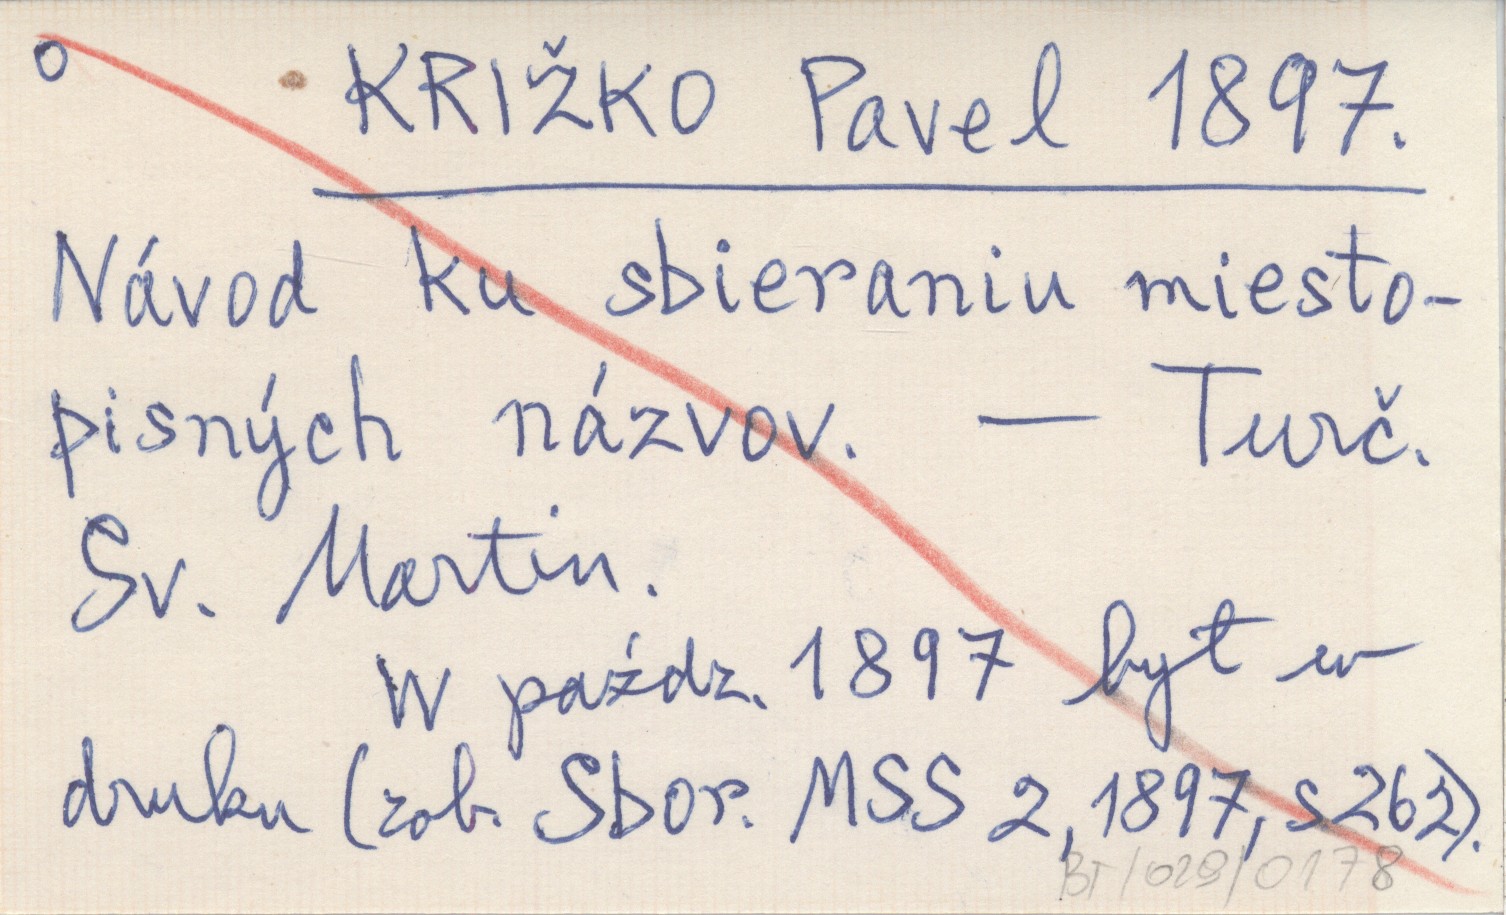 o KRIŽKO Pavel 1897.
Návod ku sbieraniu miesto-
pisných názvov. — Turč.
Sv. Martin.
W paźdz. 1897 był w
druku (zob. Sbor. MSS 2, 1897, s 262).
BT/029/0178